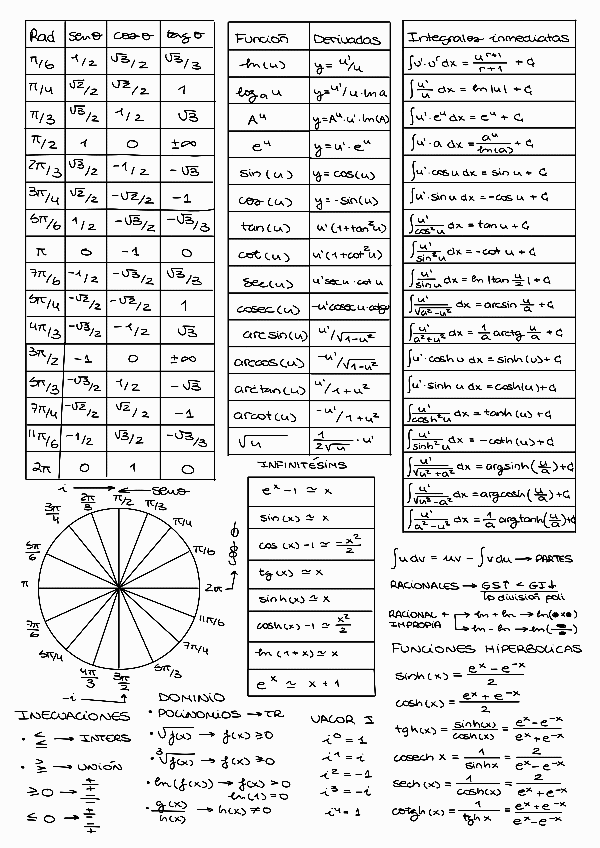 Rad senθ cosθ tangθ
π/6 1/2 √3/2 √3/3
π/4 √2/2 √2/2 1
π/3 √3/2 1/2 √3
π/2 1 0 ±∞
2π/3 √3/2 -1/2 -√3
3π/4 √2/2 -√2/2 -1
5π/6 1/2 -√3/2 -√3/3
π 0 -1 0
7π/6 -1/2 -√3/2 √3/3
5π/4 -√2/2 -√2/2 1
4π/3 -√3/2 -1/2 √3
3π/2 -1 0 ±∞
5π/3 -√3/2 1/2 -√3
7π/4 -√2/2 √2/2 -1
11π/6 -1/2 √3/2 -√3/3
2π 0 1 0
Función Derivadas
ln(u) y=u'/u
log a u y=u'/u·ln a
A^u y=A^u·u'·ln(A)
e^u y=u'·e^u
sin(u) y=cos(u)
cos(u) y=-sin(u)
tan(u) u'(1+tan²u)
cot(u) u'(1+cot²u)
sec(u) u'secu·cot u
cosec(u) -u'cosec u·cotgu
arcsin(u) u'/√1-u²
arccos(u) -u'/√1-u²
arctan(u) u'/1+u²
arcot(u) -u'/1+u²
√u 1/2√u · u'
Integrales inmediatas
∫u'·u^r dx = u^(r+1)/r+1 + C
∫u'/u dx = ln|u| + C
∫u'·e^u dx = e^u + C
∫u'·a dx = a^u/ln(a) + C
∫u'·cos u dx = sin u + C
∫u'·sin u dx = -cos u + C
∫u'/cos²u dx = tan u + C
∫u'/sin²u dx = -cot u + C
∫u'/sin u dx = ln|tan u/2| + C
∫u'/√a²-u² dx = arcsin u/a + C
∫u'/a²+u² dx = 1/a arctg u/a + C
∫u'·cosh u dx = sinh(u) + C
∫u'·sinh u dx = cosh(u) + C
∫u'/cosh²u dx = tanh(u) + C
∫u'/sinh²u dx = -coth(u) + C
∫u'/√u²+a² dx = argsinh(u/a) + C
∫u'/√u²-a² dx = argcosh(u/a) + C
∫u'/a²-u² dx = 1/a argtanh(u/a) + C
i → ← senθ
3π/4 2π/3 π/2 π/3
π/4
5π/6 π/6
π 2π → cosθ
7π/6 11π/6
5π/4 7π/4
4π/3 3π/2 5π/3
-i
INFINITÉSIMS
e^x-1 ≃ x
sin(x) ≃ x
cos(x)-1 ≃ -x²/2
tg(x) ≃ x
sinh(x) ≃ x
cosh(x)-1 ≃ x²/2
ln(1+x) ≃ x
e^x ≃ x+1
∫u dv = uv - ∫v du → PARTES
RACIONALES → GST < GI↓
↳ división poli
RACIONAL + → ln + ln → ln(•×•)
IMPROPIA → ln - ln → ln(•/•)
FUNCIONES HIPERBOLICAS
sinh(x) = e^x-e^-x/2
cosh(x) = e^x+e^-x/2
tgh(x) = sinh(x)/cosh(x) = e^x-e^-x/e^x+e^-x
cosech x = 1/sinhx = 2/e^x-e^-x
sech(x) = 1/cosh(x) = 2/e^x+e^-x
cotgh(x) = 1/tghx = e^x+e^-x/e^x-e^-x
INECUACIONES
· ≤ → INTERS
· ≥ → UNIÓN
≥0 → +/+ -/-
≤0 → +/- -/+
DOMINIO
· POLINOMIOS → IR
· √f(x) → f(x) ≥ 0
· ³√f(x) → f(x) ≥ 0
· ln(f(x)) → f(x) > 0
ln(1)=0
· g(x)/h(x) → h(x) ≠ 0
VALOR I
i⁰ = 1
i¹ = i
i² = -1
i³ = -i
i⁴ = 1